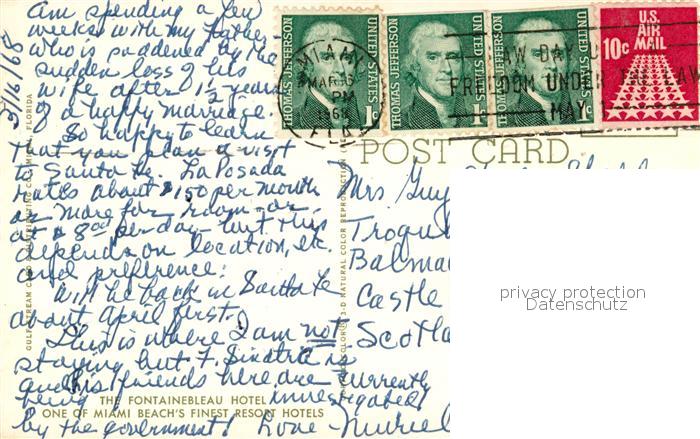 3/16/68
am spending a few
weeks with my father
who is saddened by the
sudden loss of his
wife after 1½ years
of a happy marriage.
So happy to learn
that you plan a visit
to Santa Fe. La Posada
rates about $150 per month
or more for room - or
at $8.00 per day - but this
depends on location, etc.
and preference.
Will be back in Santa Fe
about April first.
This is where I am not
staying but F. Sinatra is
and his friends here are currently
being investigated
by the government! Love - Muriel
THE FONTAINEBLEAU HOTEL
ONE OF MIAMI BEACH'S FINEST RESORT HOTELS
POST CARD
Mrs Guy
Castle
THOMAS JEFFERSON
UNITED STATES
1c
THOMAS JEFFERSON
UNITED STATES
1c
THOMAS JEFFERSON
UNITED STATES
1c
U.S.
AIR
MAIL
10c
MIAMI
MAR 16
PM
1968
FLA
LAW DAY U
FREEDOM UNDER THE LAW
MAY 1
privacy protection
Datenschutz